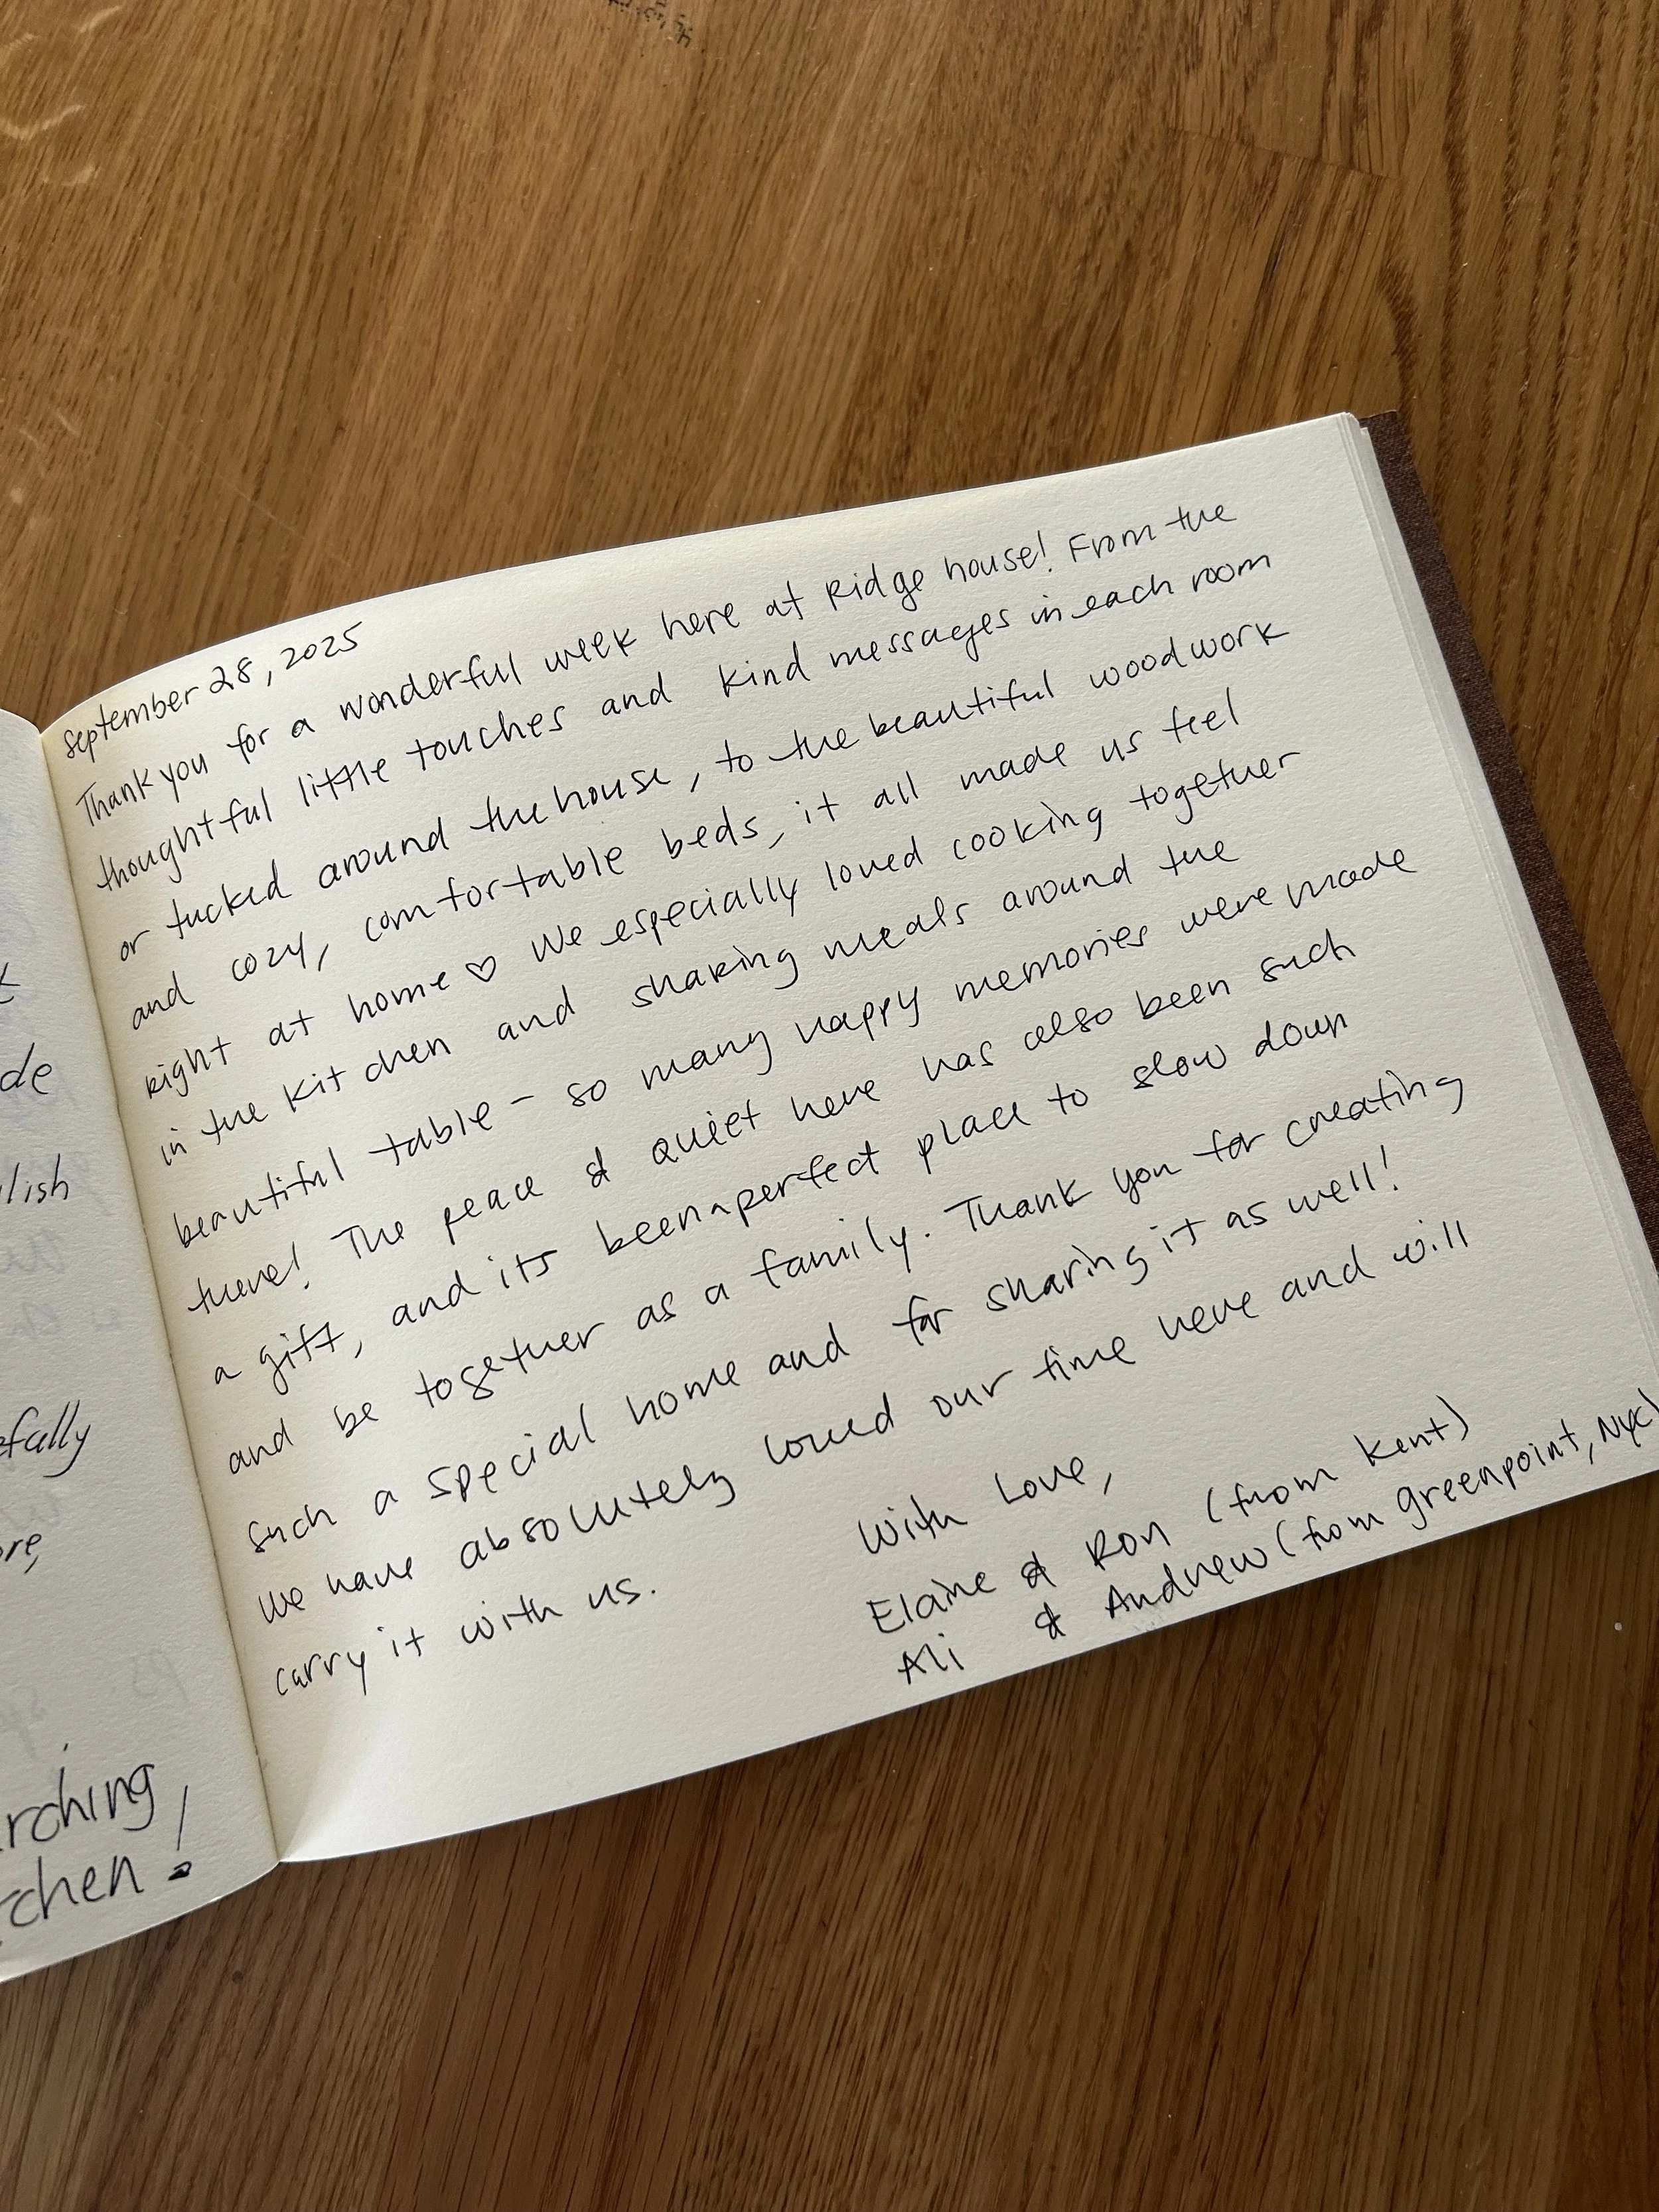 de
lish
efally
ore,
rching
tchen!
September 28, 2025
Thank you for a wonderful week here at Ridge house! From the
thoughtful little touches and kind messages in each room
or tucked around the house, to the beautiful woodwork
and cozy, comfortable beds, it all made us feel
right at home ♡ We especially loved cooking together
in the kitchen and sharing meals around the
beautiful table - so many happy memories were made
there! The peace & quiet here has also been such
a gift, and its been a perfect place to slow down
and be together as a family. Thank you for creating
such a special home and for sharing it as well!
We have absolutely loved our time here and will
carry it with us.
With Love,
Elaine & Ron (from Kent)
Ali & Andrew (from greenpoint, NYC)